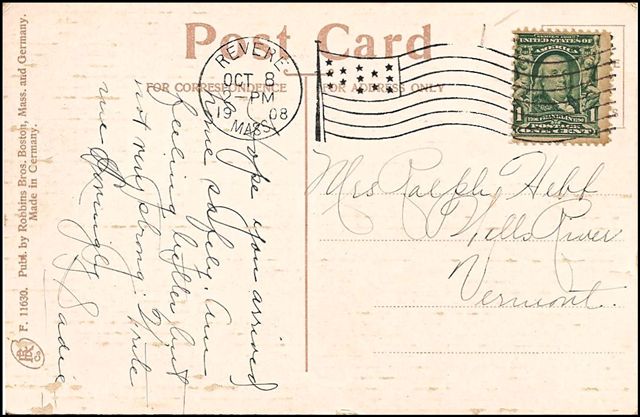 Post Card
FOR CORRESPONDENCE
FOR ADDRESS ONLY
REVERE
OCT 8
PM
1908
MASS.
UNITED STATES OF AMERICA
1 FRANKLIN 1
ONE CENT
Hope you arrived
home safely. Am
feeling better but
not very strong. Write
me
Lovingly Sadie
Mrs Ralph Hebb
Wells River
Vermont.
F. 11630. Publ. by Robbins Bros. Boston, Mass. and Germany.
Made in Germany.